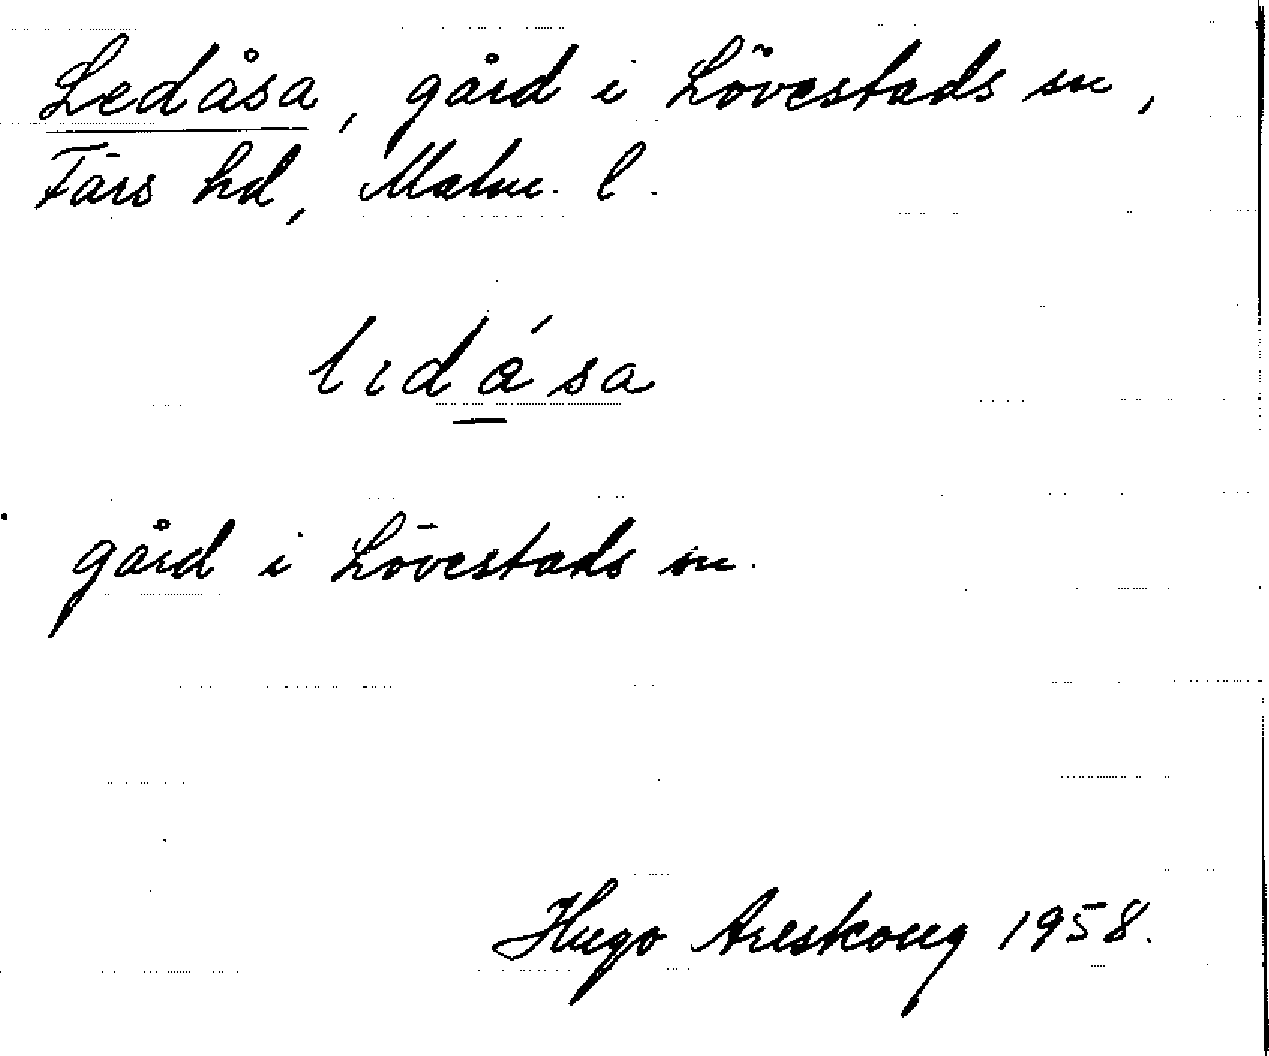 Ledåsa, gård i Lövestads sn,
Färs hd, Malm. l.
lıdá̱sa
gård i Lövestads sn.
Hugo Areskoug 1958.